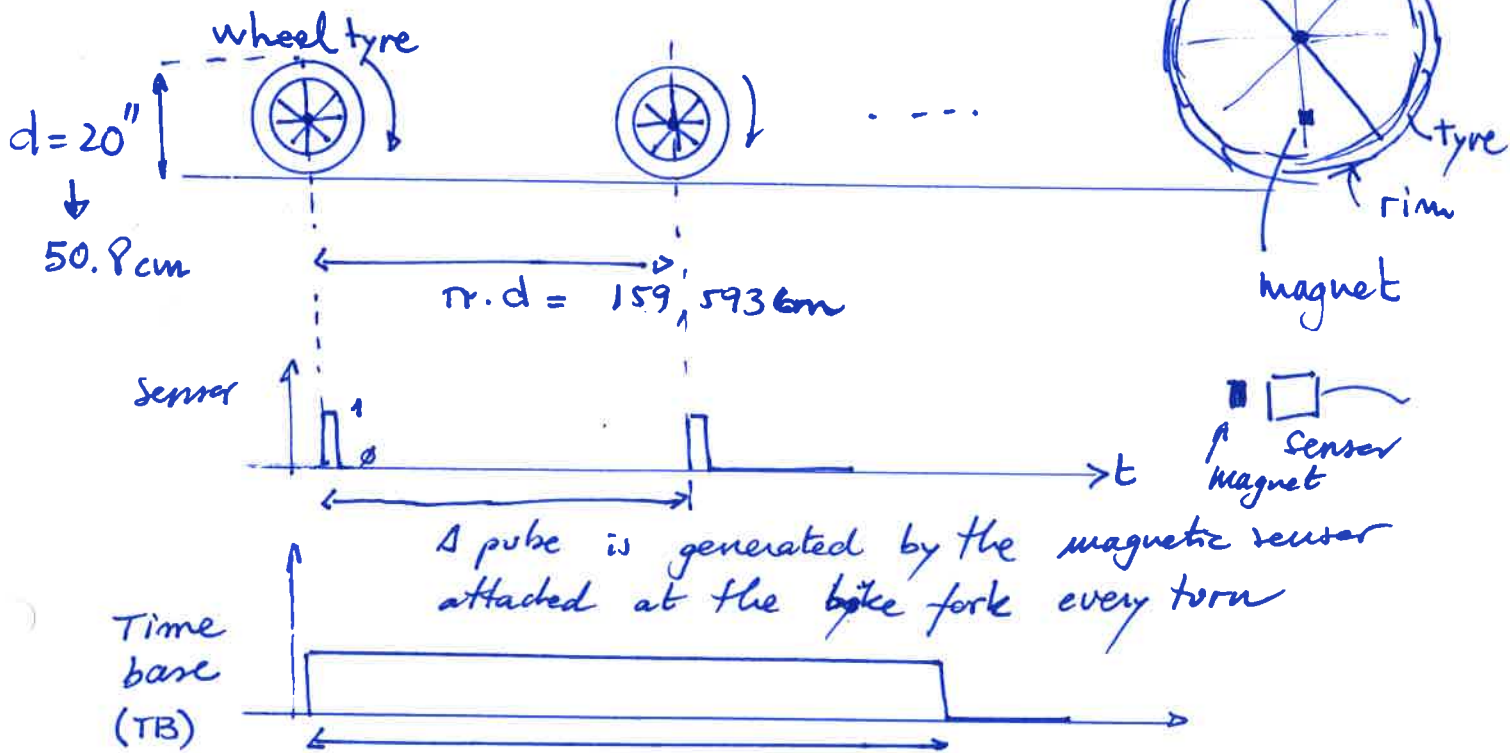 wheel tyre
d = 20"
50.8cm
π.d = 159,593cm
tyre
rim
magnet
sensor
1
ø
t
sensor
magnet
A pulse is generated by the magnetic sensor
attached at the bike fork every turn
Time
base
(TB)